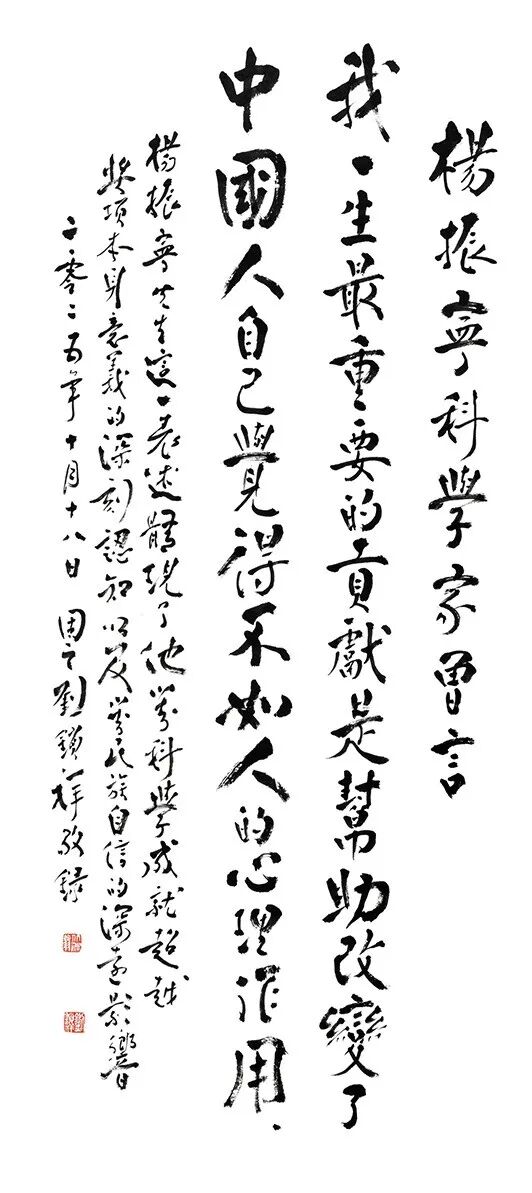 楊振寧科學家曽言
我一生最重要的貢獻是幫助改變了
中國人自己覺得不如人的心理作用、
楊振寧先生這一表述體現了他對科學成就超越
奖項本身意義的深刻認知以及對民族自信的深遠影響
二零二五年十月十八日 周之劉鎖祥敬録